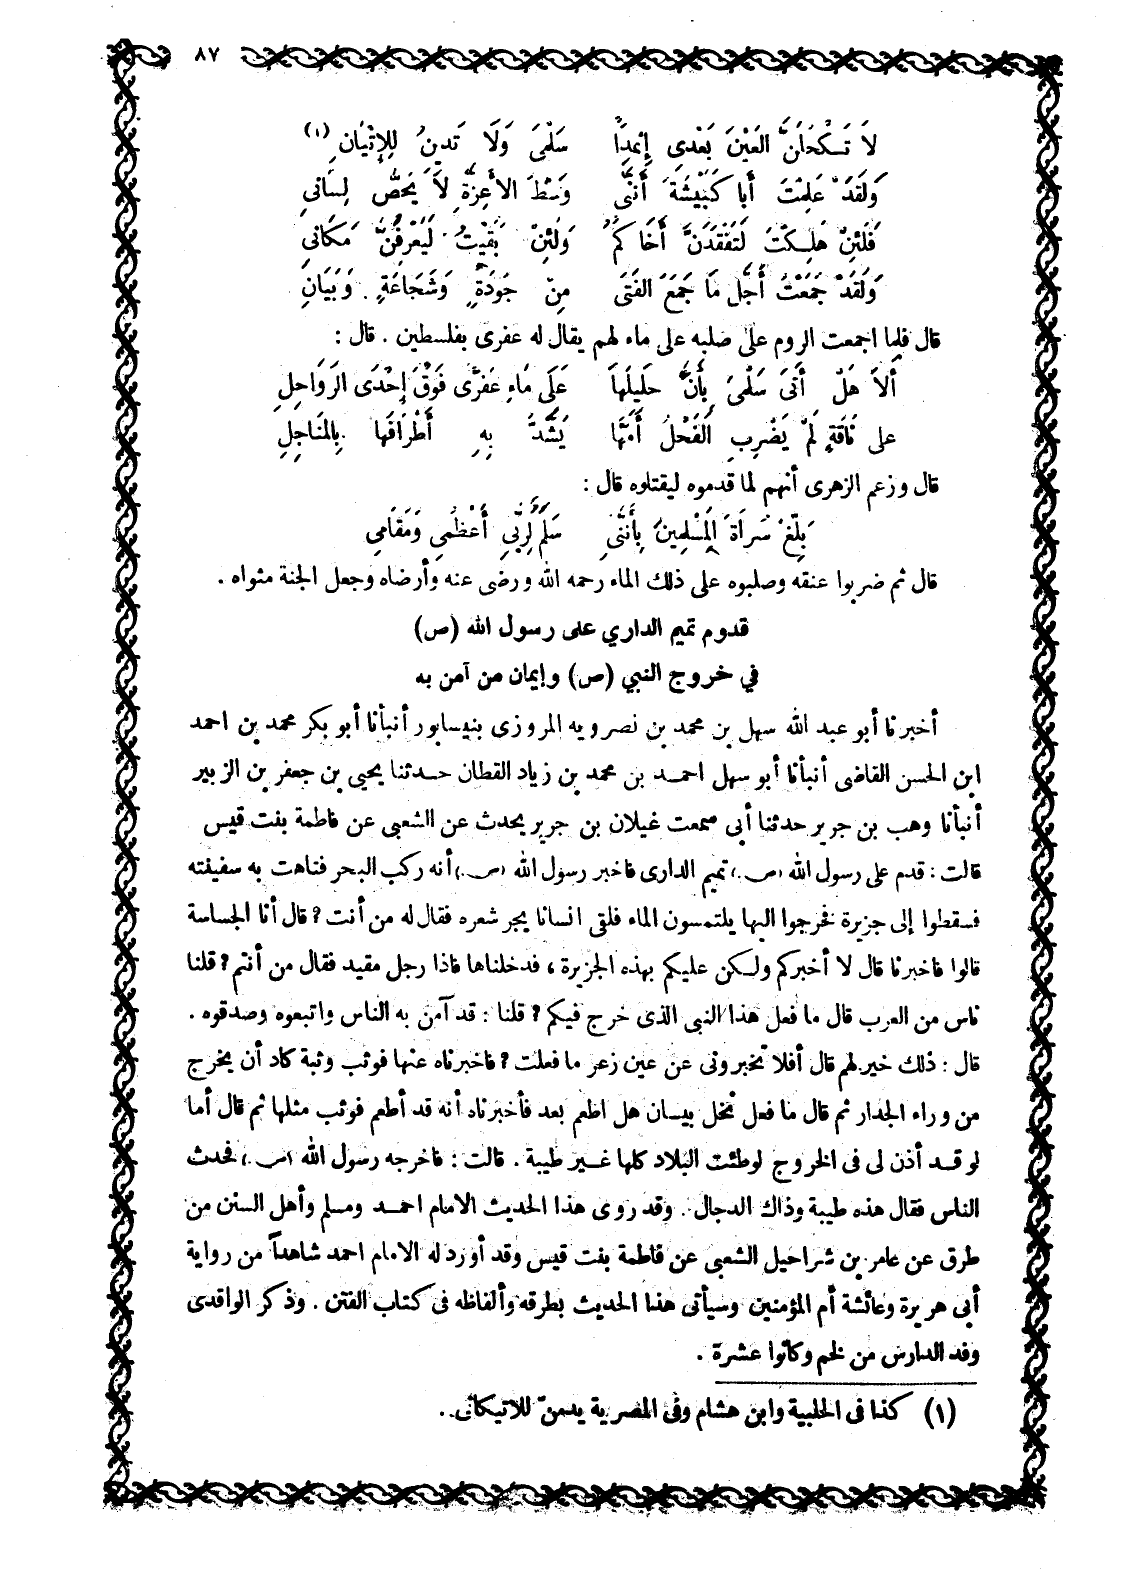 ٨٧
لاَ تَكْحَلَنَّ العَيْنَ بَعْدِى إِثْمِدًا سَلْمَى وَلاَ تَدِينُ لِلإِتْيَانِ (١)
وَلَقَدْ عَلِمْتَ أَبَا كُبَيْشَةَ أَنَّنِى وَسْطَ الأَعِزَّةِ لاَ يُحَصُّ لِسَانِى
فَلَئِنْ هَلِكْتَ لَتَفْقِدَنَّ أَخَاكُم وَلَئِنْ بَقِيْتُ لَيَعْرِفَنَّ مَكَانِى
وَلَقَدْ جَمَعْتُ أَجَلَّ مَا جَمَعَ الفَتَى مِنْ جَوْدَةٍ وَشَجَاعَةٍ وَبَيَانِ
قال فلما اجمعت الروم على صلبه على ماء لهم يقال له عفرى بفلسطين . قال :
أَلاَ هَلْ أَتَى سَلْمَى بِأَنَّ حَلِيلَهَا عَلَى مَاءِ عَفْرَى فَوْقَ إِحْدَى الرَوَاحِلِ
على نَاقَةٍ لَمْ يَضْرِبِ الفَحْلُ أُمَّهَا يُشَدُّ بِهِ أَطْرَافُهَا بِالمَنَاجِلِ
قال وزعم الزهرى أنهم لما قدموه ليقتلوه قال :
بَلِّغْ سَرَاةَ المُسْلِمِينَ بِأَنَّنِى سَلَمٌ لِرَبِّى أَعْظُمِى وَمَقَامِى
قال ثم ضربوا عنقه وصلبوه على ذلك الماء رحمه الله ورضى عنه وأرضاه وجعل الجنة مثواه .
قدوم تميم الداري على رسول الله (ص)
في خروج النبي (ص) وإيمان من آمن به
أخبرنا أبو عبد الله سهل بن محمد بن نصرويه المروزى بنيسابور أنبأنا أبو بكر محمد بن احمد
ابن الحسن القاضى أنبأنا أبو سهل احمد بن محمد بن زياد القطان حدثنا يحيى بن جعفر بن الزبير
أنبأنا وهب بن جرير حدثنا أبى سمعت غيلان بن جرير يحدث عن الشعبى عن فاطمة بنت قيس
قالت : قدم على رسول الله (ص) تميم الدارى فاخبر رسول الله (ص) أنه ركب البحر فتاهت به سفينته
فسقطوا إلى جزيرة فخرجوا اليها يلتمسون الماء فلقى انسانا يجر شعره فقال له من أنت ? قال أنا الجساسة
قالوا فاخبرنا قال لا أخبركم ولكن عليكم بهذه الجزيرة ، فدخلناها فاذا رجل مقيد فقال من أنتم ? قلنا
ناس من العرب قال ما فعل هذا النبى الذى خرج فيكم ? قلنا : قد آمن به الناس واتبعوه وصدقوه .
قال : ذلك خير لهم قال أفلا تخبرونى عن عين زعر ما فعلت ? فاخبرناه عنها فوثب وثبة كاد أن يخرج
من وراء الجدار ثم قال ما فعل نخل بيسان هل اطعم بعد فأخبرناه أنه قد أطعم فوثب مثلها ثم قال أما
لو قد أذن لى فى الخروج لوطئت البلاد كلها غير طيبة . قالت : فاخرجه رسول الله (ص) فحدث
الناس فقال هذه طيبة وذاك الدجال . وقد روى هذا الحديث الامام احمد ومسلم وأهل السنن من
طرق عن عامر بن شراحيل الشعبى عن فاطمة بنت قيس وقد أورد له الامام احمد شاهداً من رواية
أبى هريرة وعائشة أم المؤمنين وسيأتى هذا الحديث بطرقه وألفاظه فى كتاب الفتن . وذكر الواقدى
وفد الدارس من لخم وكانوا عشرة .
(١) كذا فى الحلبية وابن هشام وفى المصرية يدمنّ للاتيكانى .